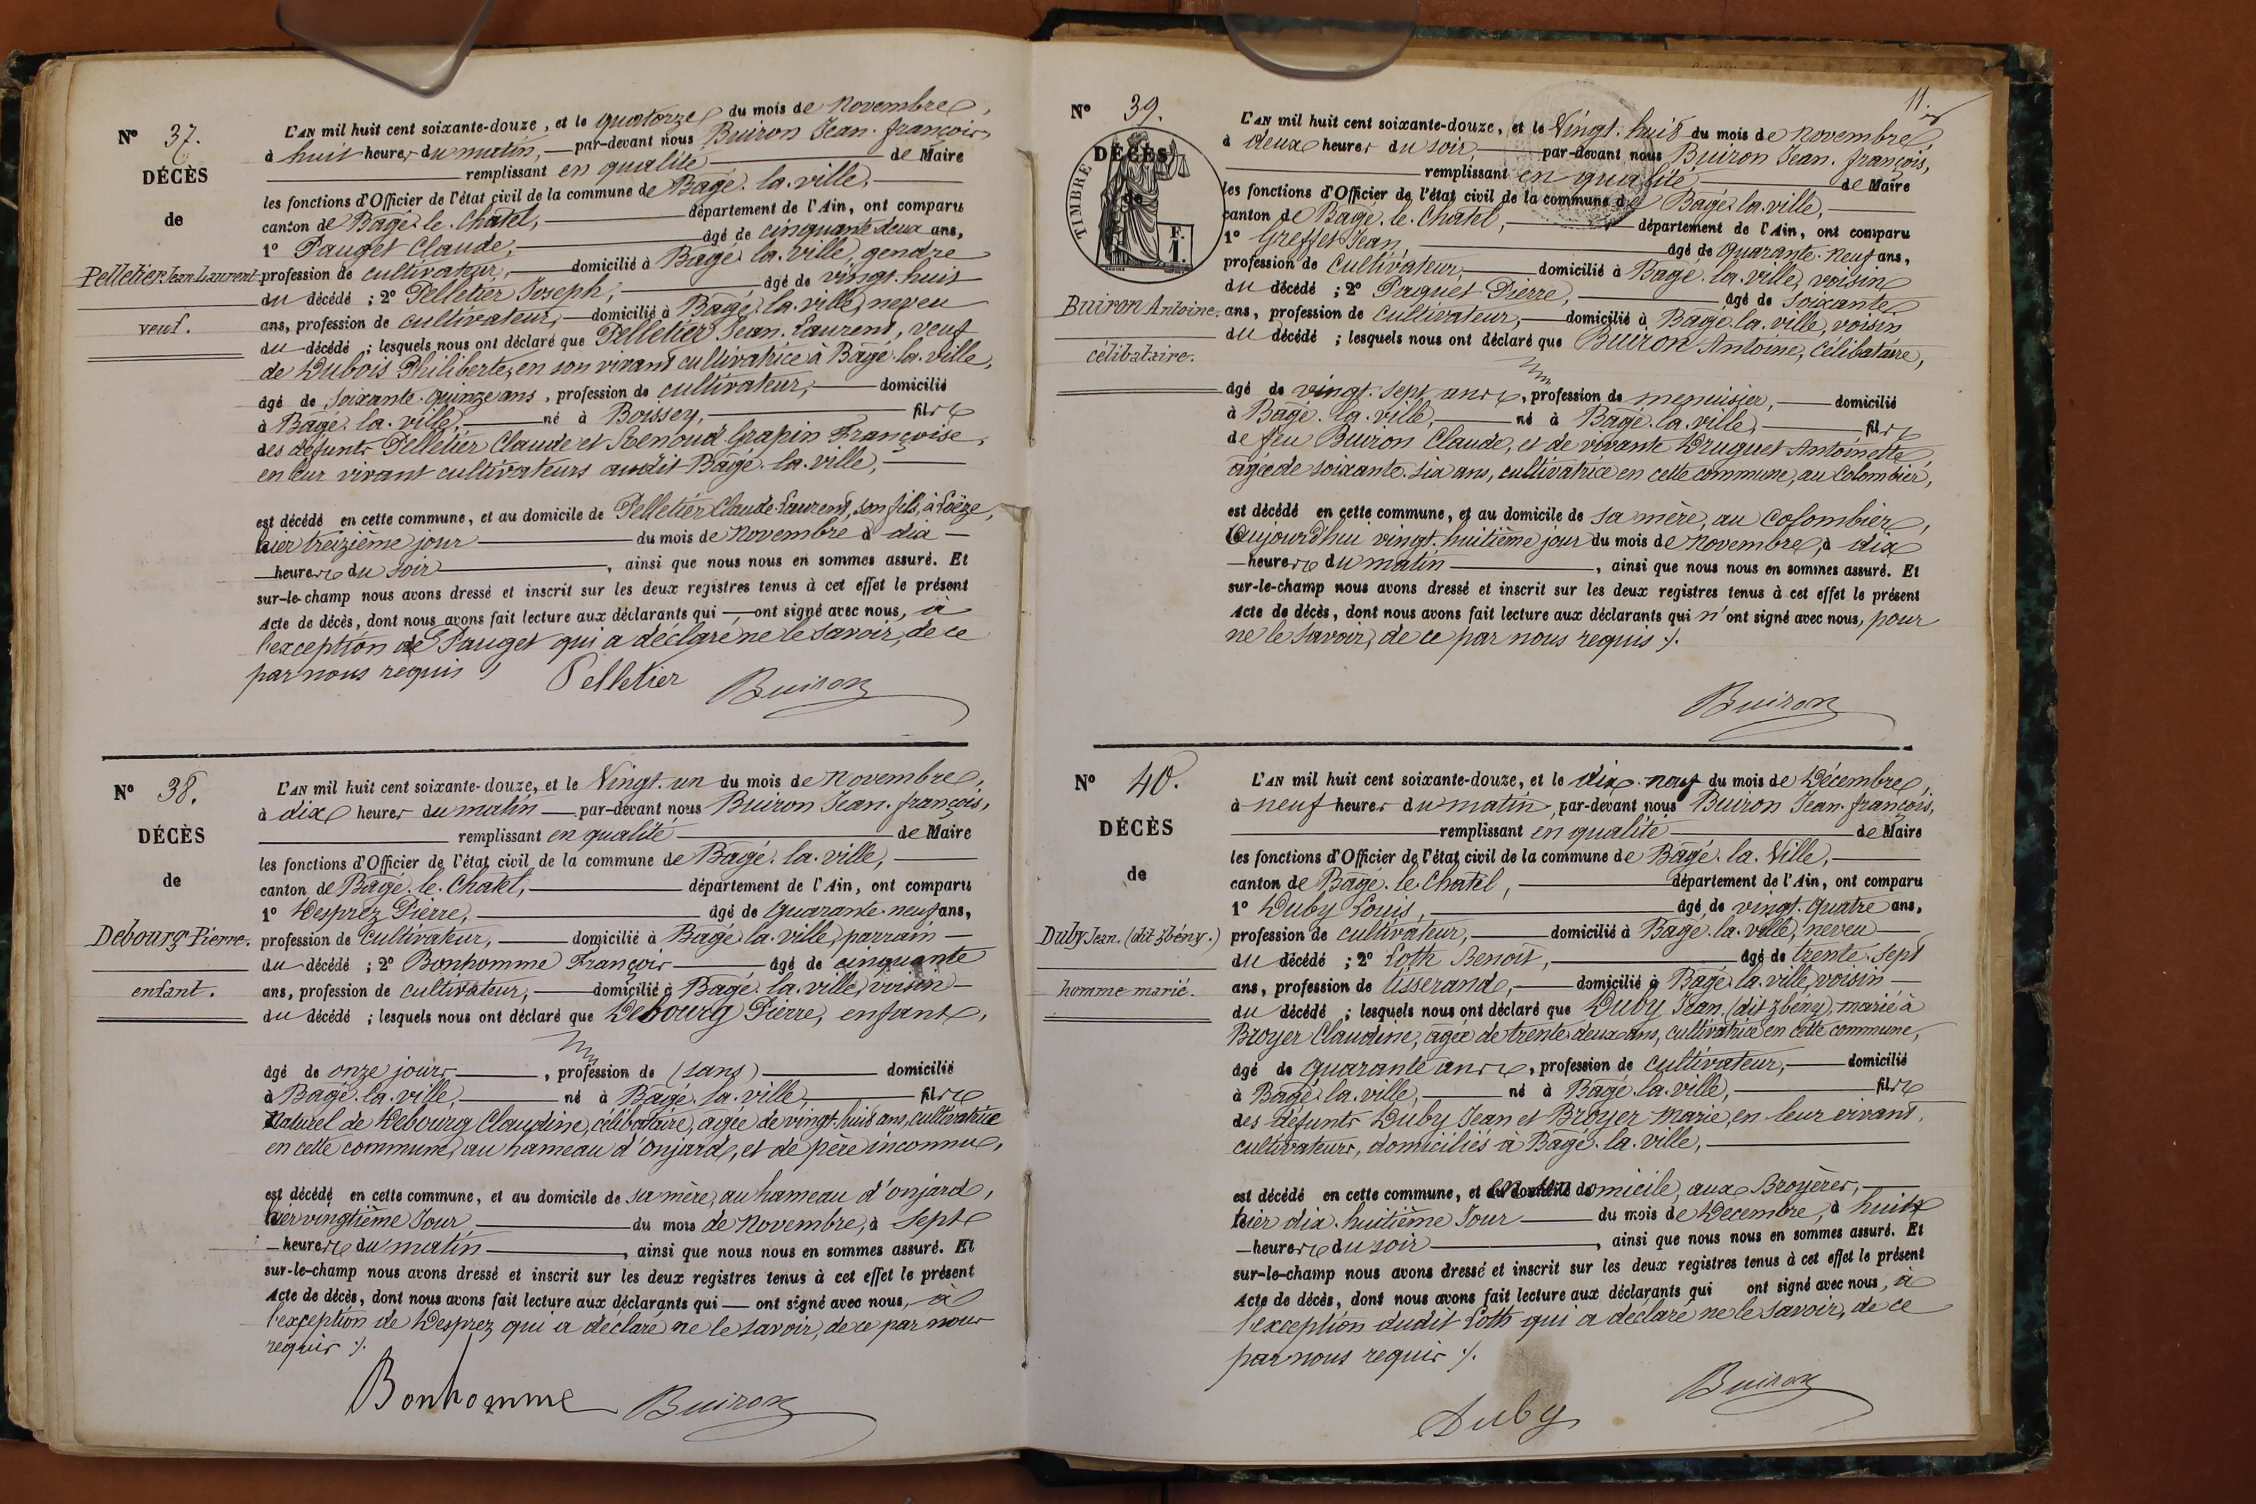 N° 37.
DÉCÈS
de
Pelletier Jean Laurent
veuf.
L'AN mil huit cent soixante-douze, et le quatorze du mois de Novembre,
à huit heures du matin, par-devant nous Buiron Jean-françois,
remplissant en qualité de Maire
les fonctions d'Officier de l'état civil de la commune de Bâgé-la-ville,
canton de Bâgé-le-Chatel, département de l'Ain, ont comparu
1° Pauget Claude, âgé de cinquante deux ans,
profession de cultivateur, domicilié à Bâgé-la-ville, gendre
du décédé ; 2° Pelletier Joseph, âgé de vingt-huit
ans, profession de cultivateur, domicilié à Bâgé-la-ville, neveu
du décédé ; lesquels nous ont déclaré que Pelletier Jean-Laurent, veuf
de Dubois Philiberte, en son vivant cultivatrice à Bâgé-la-ville,
âgé de soixante-quinze ans, profession de cultivateur, domicilié
à Bâgé-la-ville, né à Boissey, fils
des défunts Pelletier Claude et Renoud Grapin Françoise,
en leur vivant cultivateurs audit Bâgé-la-ville,
est décédé en cette commune, et au domicile de Pelletier Claude-Laurent, son fils, à Loëze,
hier treizième jour du mois de Novembre à dix
heures du soir, ainsi que nous nous en sommes assuré. Et
sur-le-champ nous avons dressé et inscrit sur les deux registres tenus à cet effet le présent
Acte de décès, dont nous avons fait lecture aux déclarants qui ont signé avec nous, à
l'exception de Pauget qui a déclaré ne le savoir, de ce
par nous requis
Pelletier Buiron
N° 38.
DÉCÈS
de
Debourg Pierre.
enfant.
L'AN mil huit cent soixante-douze, et le Vingt-un du mois de Novembre,
à dix heures du matin par-devant nous Buiron Jean-françois,
remplissant en qualité de Maire
les fonctions d'Officier de l'état civil de la commune de Bâgé-la-ville,
canton de Bâgé-le-Chatel, département de l'Ain, ont comparu
1° Desprez Pierre, âgé de Quarante-neuf ans,
profession de cultivateur, domicilié à Bâgé-la-ville, parrain
du décédé ; 2° Bonhomme François âgé de cinquante
ans, profession de cultivateur, domicilié à Bâgé-la-ville, voisin
du décédé ; lesquels nous ont déclaré que Debourg Pierre, enfant,
âgé de onze jours, profession de (sans) domicilié
à Bâgé-la-ville, né à Bâgé-la-ville, fils
Naturel de Debourg Claudine, célibataire, agée de vingt-huit ans, cultivatrice
en cette commune, au hameau d'onjard, et de père inconnu,
est décédé en cette commune, et au domicile de sa mère, au hameau d'onjard,
hier vingtième Jour du mois de Novembre, à sept
heures du matin, ainsi que nous nous en sommes assuré. Et
sur-le-champ nous avons dressé et inscrit sur les deux registres tenus à cet effet le présent
Acte de décès, dont nous avons fait lecture aux déclarants qui ont signé avec nous, à
l'exception de Desprez qui a déclaré ne le savoir, de ce par nous
requis ./.
Bonhomme Buiron
11.
N° 39.
TIMBRE
F.
1.
DÉCÈS
de
Buiron Antoine,
célibataire.
L'AN mil huit cent soixante-douze, et le Vingt-huit du mois de Novembre,
à deux heures du soir, par-devant nous Buiron Jean-françois,
remplissant en qualité de Maire
les fonctions d'Officier de l'état civil de la commune de Bâgé-la-ville,
canton de Bâgé-le-Chatel, département de l'Ain, ont comparu
1° Greffet Jean, âgé de Quarante-neuf ans,
profession de Cultivateur, domicilié à Bâgé-la-ville, voisin
du décédé ; 2° Paquet Pierre, âgé de soixante
ans, profession de cultivateur, domicilié à Bâgé-la-ville, voisin
du décédé ; lesquels nous ont déclaré que Buiron Antoine, Célibataire,
âgé de vingt-sept ans, profession de menuisier, domicilié
à Bâgé-la-ville, né à Bâgé-la-ville, fils
de feu Buiron Claude, et de vivante Druguet Antoinette
agée de soixante-six ans, cultivatrice en cette commune, au Colombier,
est décédé en cette commune, et au domicile de sa mère, au Colombier,
Aujourd'hui vingt-huitième jour du mois de Novembre, à dix
heures du matin, ainsi que nous nous en sommes assuré. Et
sur-le-champ nous avons dressé et inscrit sur les deux registres tenus à cet effet le présent
Acte de décès, dont nous avons fait lecture aux déclarants qui n'ont signé avec nous, pour
ne le savoir, de ce par nous requis ./.
Buiron
N° 40.
DÉCÈS
de
Duby Jean. (dit zbény.)
homme marié.
L'AN mil huit cent soixante-douze, et le dix-neuf du mois de Décembre,
à neuf heures du matin, par-devant nous Buiron Jean-françois,
remplissant en qualité de Maire
les fonctions d'Officier de l'état civil de la commune de Bâgé-la-Ville,
canton de Bâgé-le-Chatel, département de l'Ain, ont comparu
1° Duby Louis, âgé de vingt-Quatre ans,
profession de cultivateur, domicilié à Bâgé-la-ville, neveu
du décédé ; 2° Loth Benoît, âgé de trente-sept
ans, profession de tisserand, domicilié à Bâgé-la-ville, voisin
du décédé ; lesquels nous ont déclaré que Duby Jean (dit zbény), marié à
Broyer Claudine, agée de trente-deux ans, cultivatrice en cette commune,
âgé de Quarante ans, profession de cultivateur, domicilié
à Bâgé-la-ville, né à Bâgé-la-ville, fils
des défunts Duby Jean et Broyer Marie, en leur vivant,
cultivateurs, domiciliés à Bâgé-la-ville,
est décédé en cette commune, et en son domicile, aux Broyères,
hier dix-huitième Jour du mois de Décembre, à huit
heures du soir, ainsi que nous nous en sommes assuré. Et
sur-le-champ nous avons dressé et inscrit sur les deux registres tenus à cet effet le présent
Acte de décès, dont nous avons fait lecture aux déclarants qui ont signé avec nous, à
l'exception dudit Loth qui a déclaré ne le savoir, de ce
par nous requis ./.
Duby Buiron